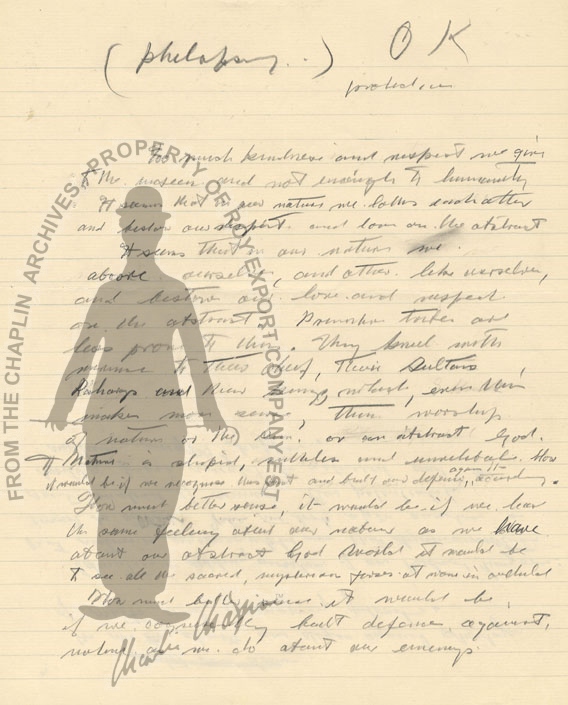 (philosophy..) OK
Too much kindness and respect we give
to the unseen and not enough to humanity
It seems that in our nature we each other
and bestow our respect and love on the abstract
It seems that in our nature we
ourselves, and other like ourselves,
and bestow our love and respect
on the abstract. Primative tribes are
less prone to this. They kneel with
to their chief, their Sultans
and their kings, which, even this
makes more sense, than worship
of nature or the sun. or an abstract God.
Nature is stupid, ruthless and How
it would be if we recognise this fact and built our defense against it accordingly.
How much better sense, it would be if we
the same feeling about our as we have
about an abstract God would it would be
to see all the sacred, mysterious forces at work in
How much it would be,
if we built defense against,
nature as we do about our enemys.
FROM THE CHAPLIN ARCHIVES, PROPERTY OF ROY EXPORT COMPANY EST